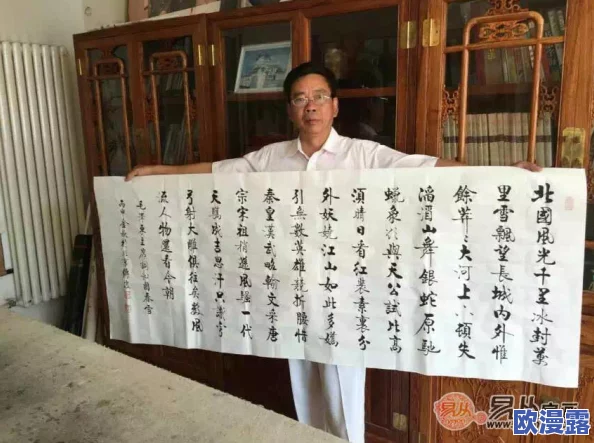 北國風光千里冰封萬
里雪飄望長城內外惟
餘莽々大河上下頓失
滔滔山舞銀蛇原馳
蠟象欲與天公試比高
須晴日看紅裝素裹分
外妖嬈江山如此多嬌
引無數英雄競折腰惜
秦皇漢武略輸文采唐
宗宋祖稍遜風騷一代
天驕成吉思汗只識彎
弓射大雕俱往矣數風
流人物還看今朝
毛澤東主席詞沁園春雪
丙申
易从
易从
欧漫露